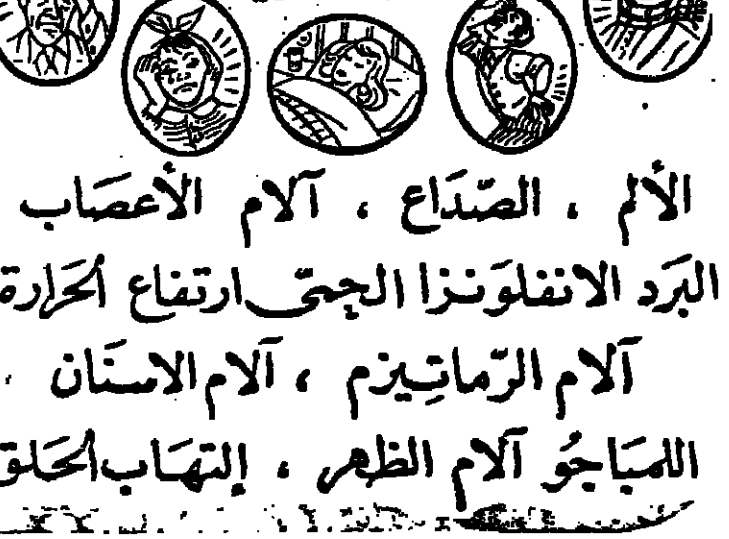 الألم ، الصّدَاع ، آلام الأعصَاب
البَرَد الانفلوَنزا الحِمّى ارتفاع الحَرارة
آلام الرّماتِيزم ، آلام الاسنَان
اللمبَاجُو آلام الظهر ، إلتهَاب الحَلق